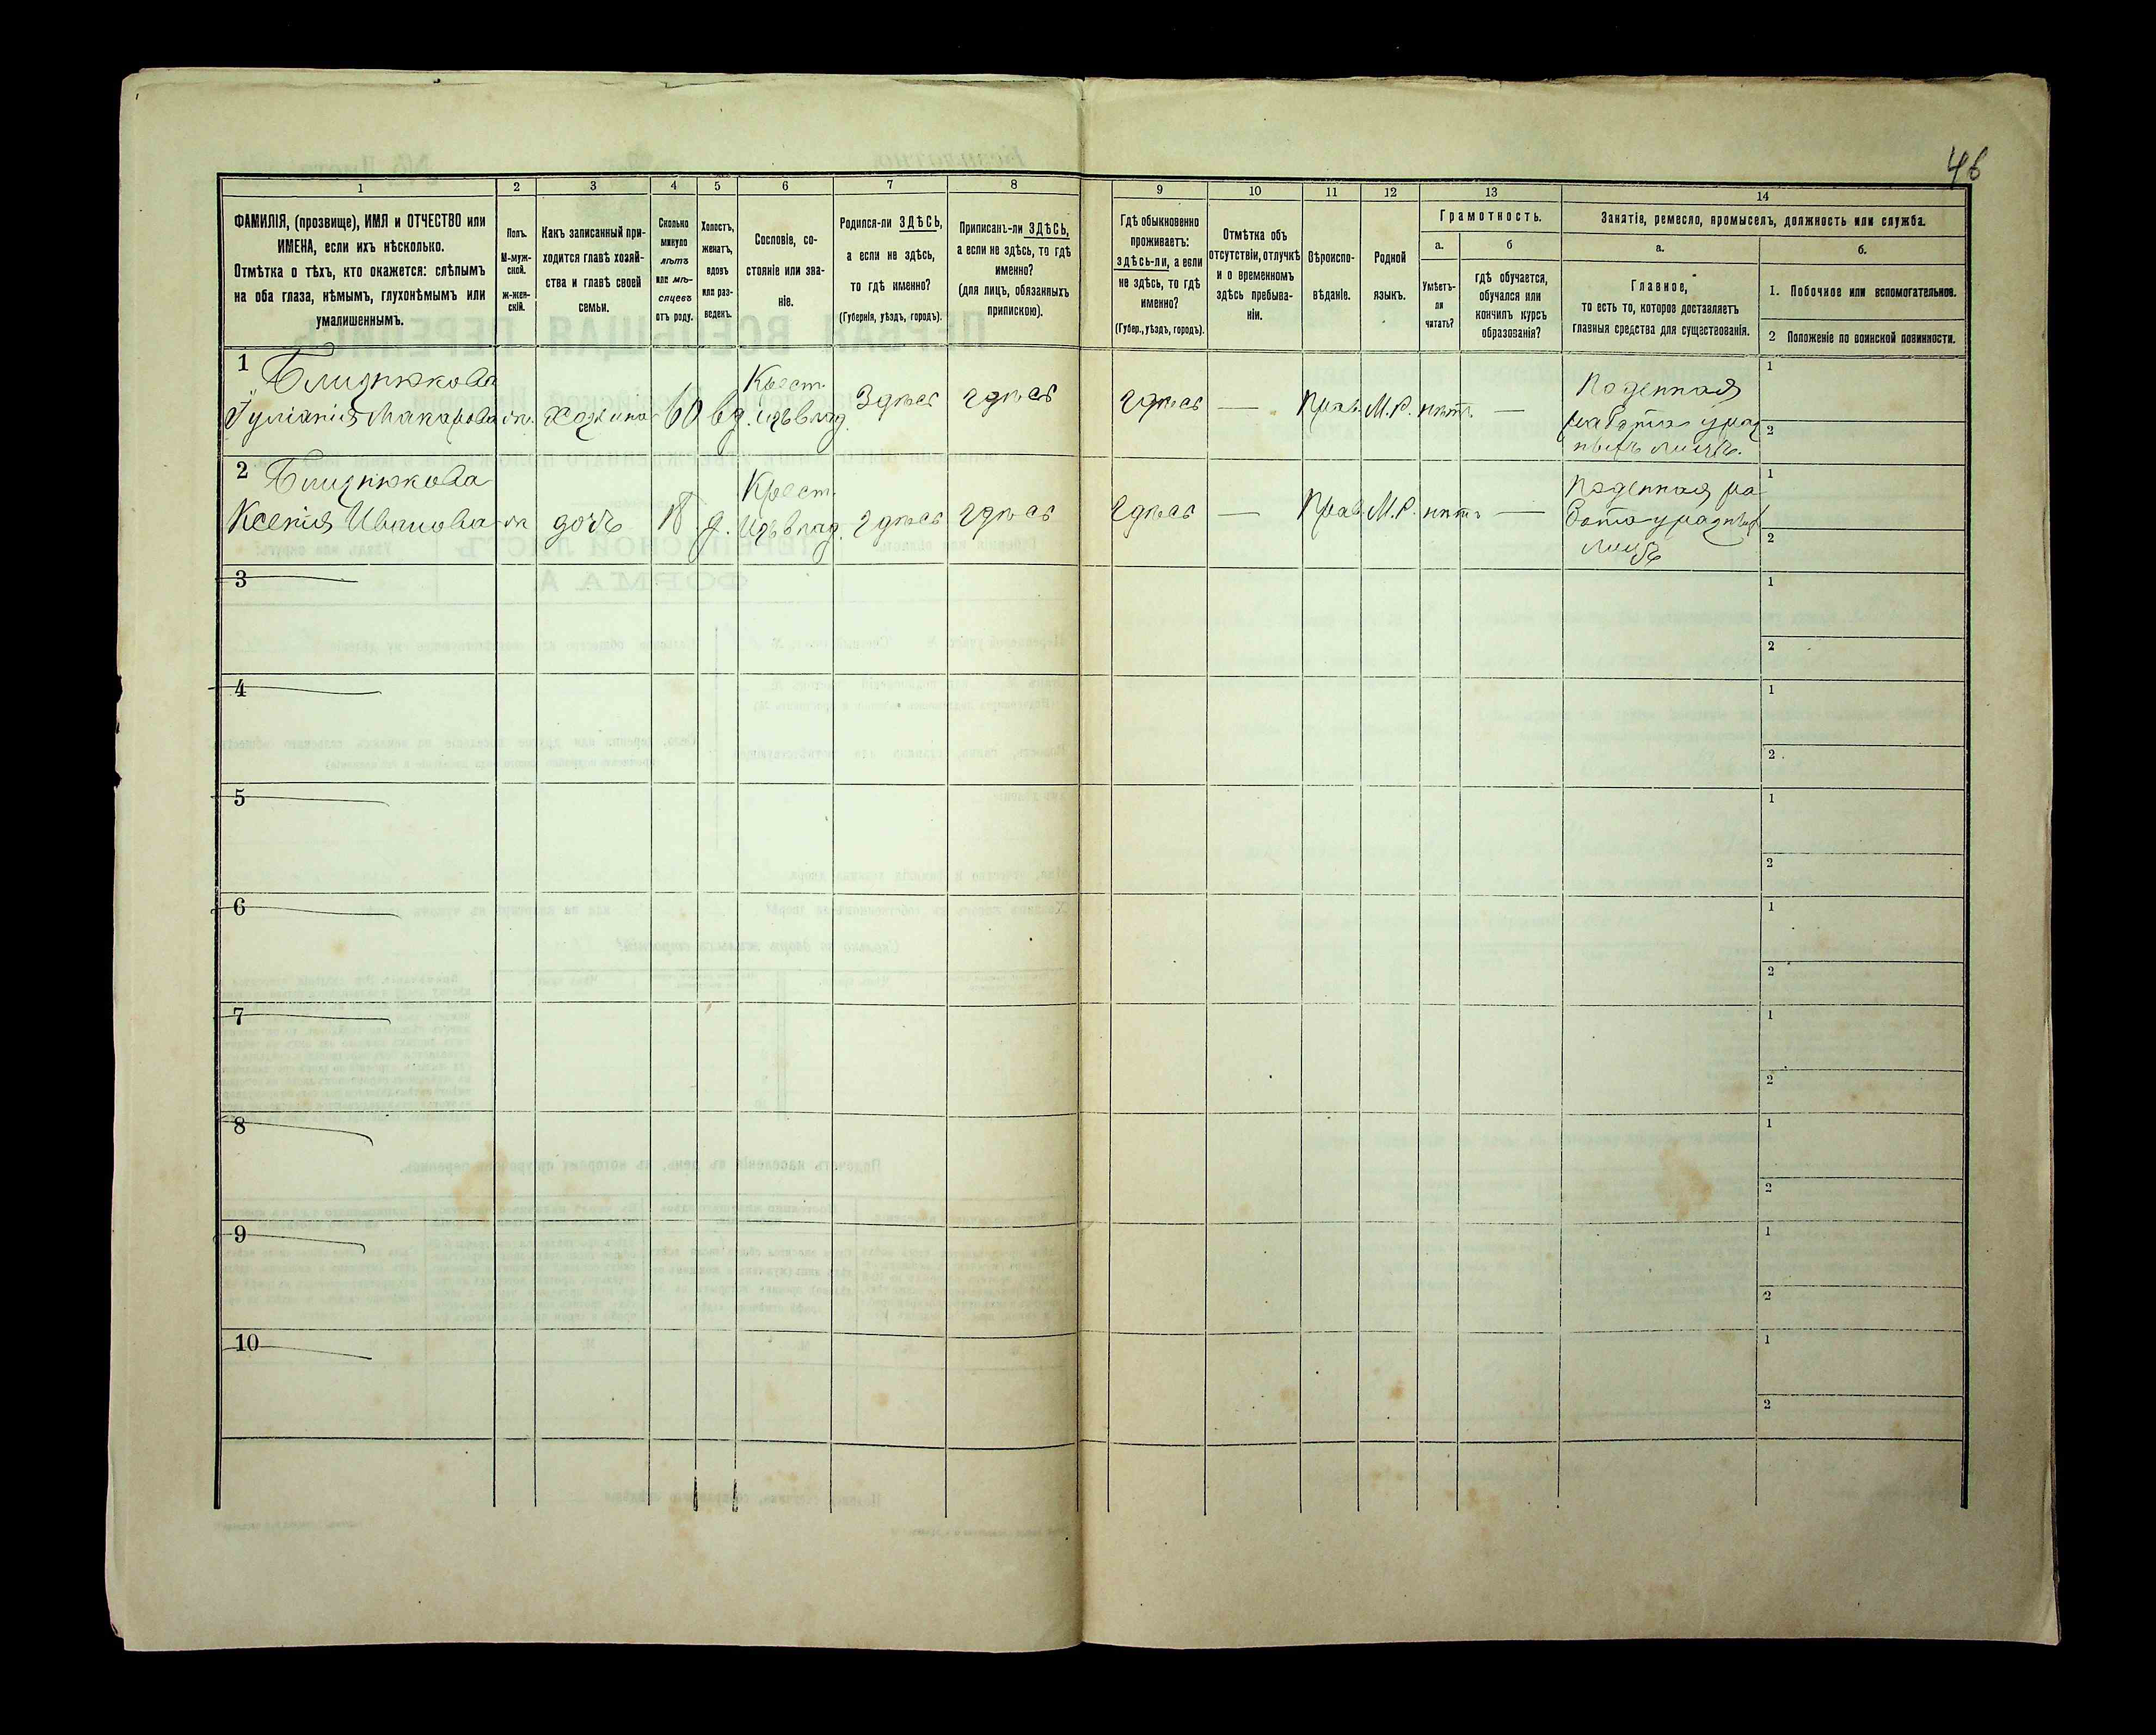 46
1 2 3 4 5 6 7 8 9 10 11 12 13 14
ФАМИЛІЯ, (прозвище), ИМЯ и ОТЧЕСТВО или
ИМЕНА, если ихъ нѣсколько.
Отмѣтка о тѣхъ, кто окажется: слѣпымъ
на оба глаза, нѣмымъ, глухонѣмымъ или
умалишеннымъ.
Полъ.
М-муж-
ской.
ж-жен-
скій.
Какъ записанный при-
ходится главѣ хозяй-
ства и главѣ своей
семьи.
Сколько
минуло
лѣтъ
или мѣ-
сяцевъ
отъ роду.
Холостъ,
женатъ,
вдовъ
или раз-
веденъ.
Сословіе, со-
стояніе или зва-
ніе.
Родился-ли ЗДѢСЬ,
а если не здѣсь,
то гдѣ именно?
(Губернія, уѣздъ, городъ).
Приписанъ-ли ЗДѢСЬ,
а если не здѣсь, то гдѣ
именно?
(для лицъ, обязанныхъ
припискою).
Гдѣ обыкновенно
проживаетъ:
здѣсь-ли, а если
не здѣсь, то гдѣ
именно?
(Губер., уѣздъ, городъ).
Отмѣтка объ
отсутствіи, отлучкѣ
и о временномъ
здѣсь пребыва-
ніи.
Вѣроиспо-
вѣданіе.
Родной
языкъ.
Грамотность.
а.
Умѣетъ-
ли
читать?
б
гдѣ обучается,
обучался или
кончилъ курсъ
образованія?
Занятіе, ремесло, промыселъ, должность или служба.
а.
Главное,
то есть то, которое доставляетъ
главныя средства для существованія.
б.
1. Побочное или вспомогательное.
2 Положеніе по воинской повинности.
1
Близнюкова
Гуліанія Макарова
ж.
Хозяйка
60
вд.
Крест.
изъ влад.
Здѣсь
здѣсь
здѣсь
—
Прав.
М.Р.
нѣтъ
—
Поденная
работа у раз
ныхъ лицъ.
1
2
2
Близнюкова
Ксенія Иванова
ж
дочь
18
д.
Крест.
изъ влад.
здѣсь
здѣсь
здѣсь
—
Прав.
М.Р.
нѣтъ
—
Поденная ра
бота у разныхъ
лицъ
1
2
3
1
2
4
1
2
5
1
2
6
1
2
7
1
2
8
1
2
9
1
2
10
1
2